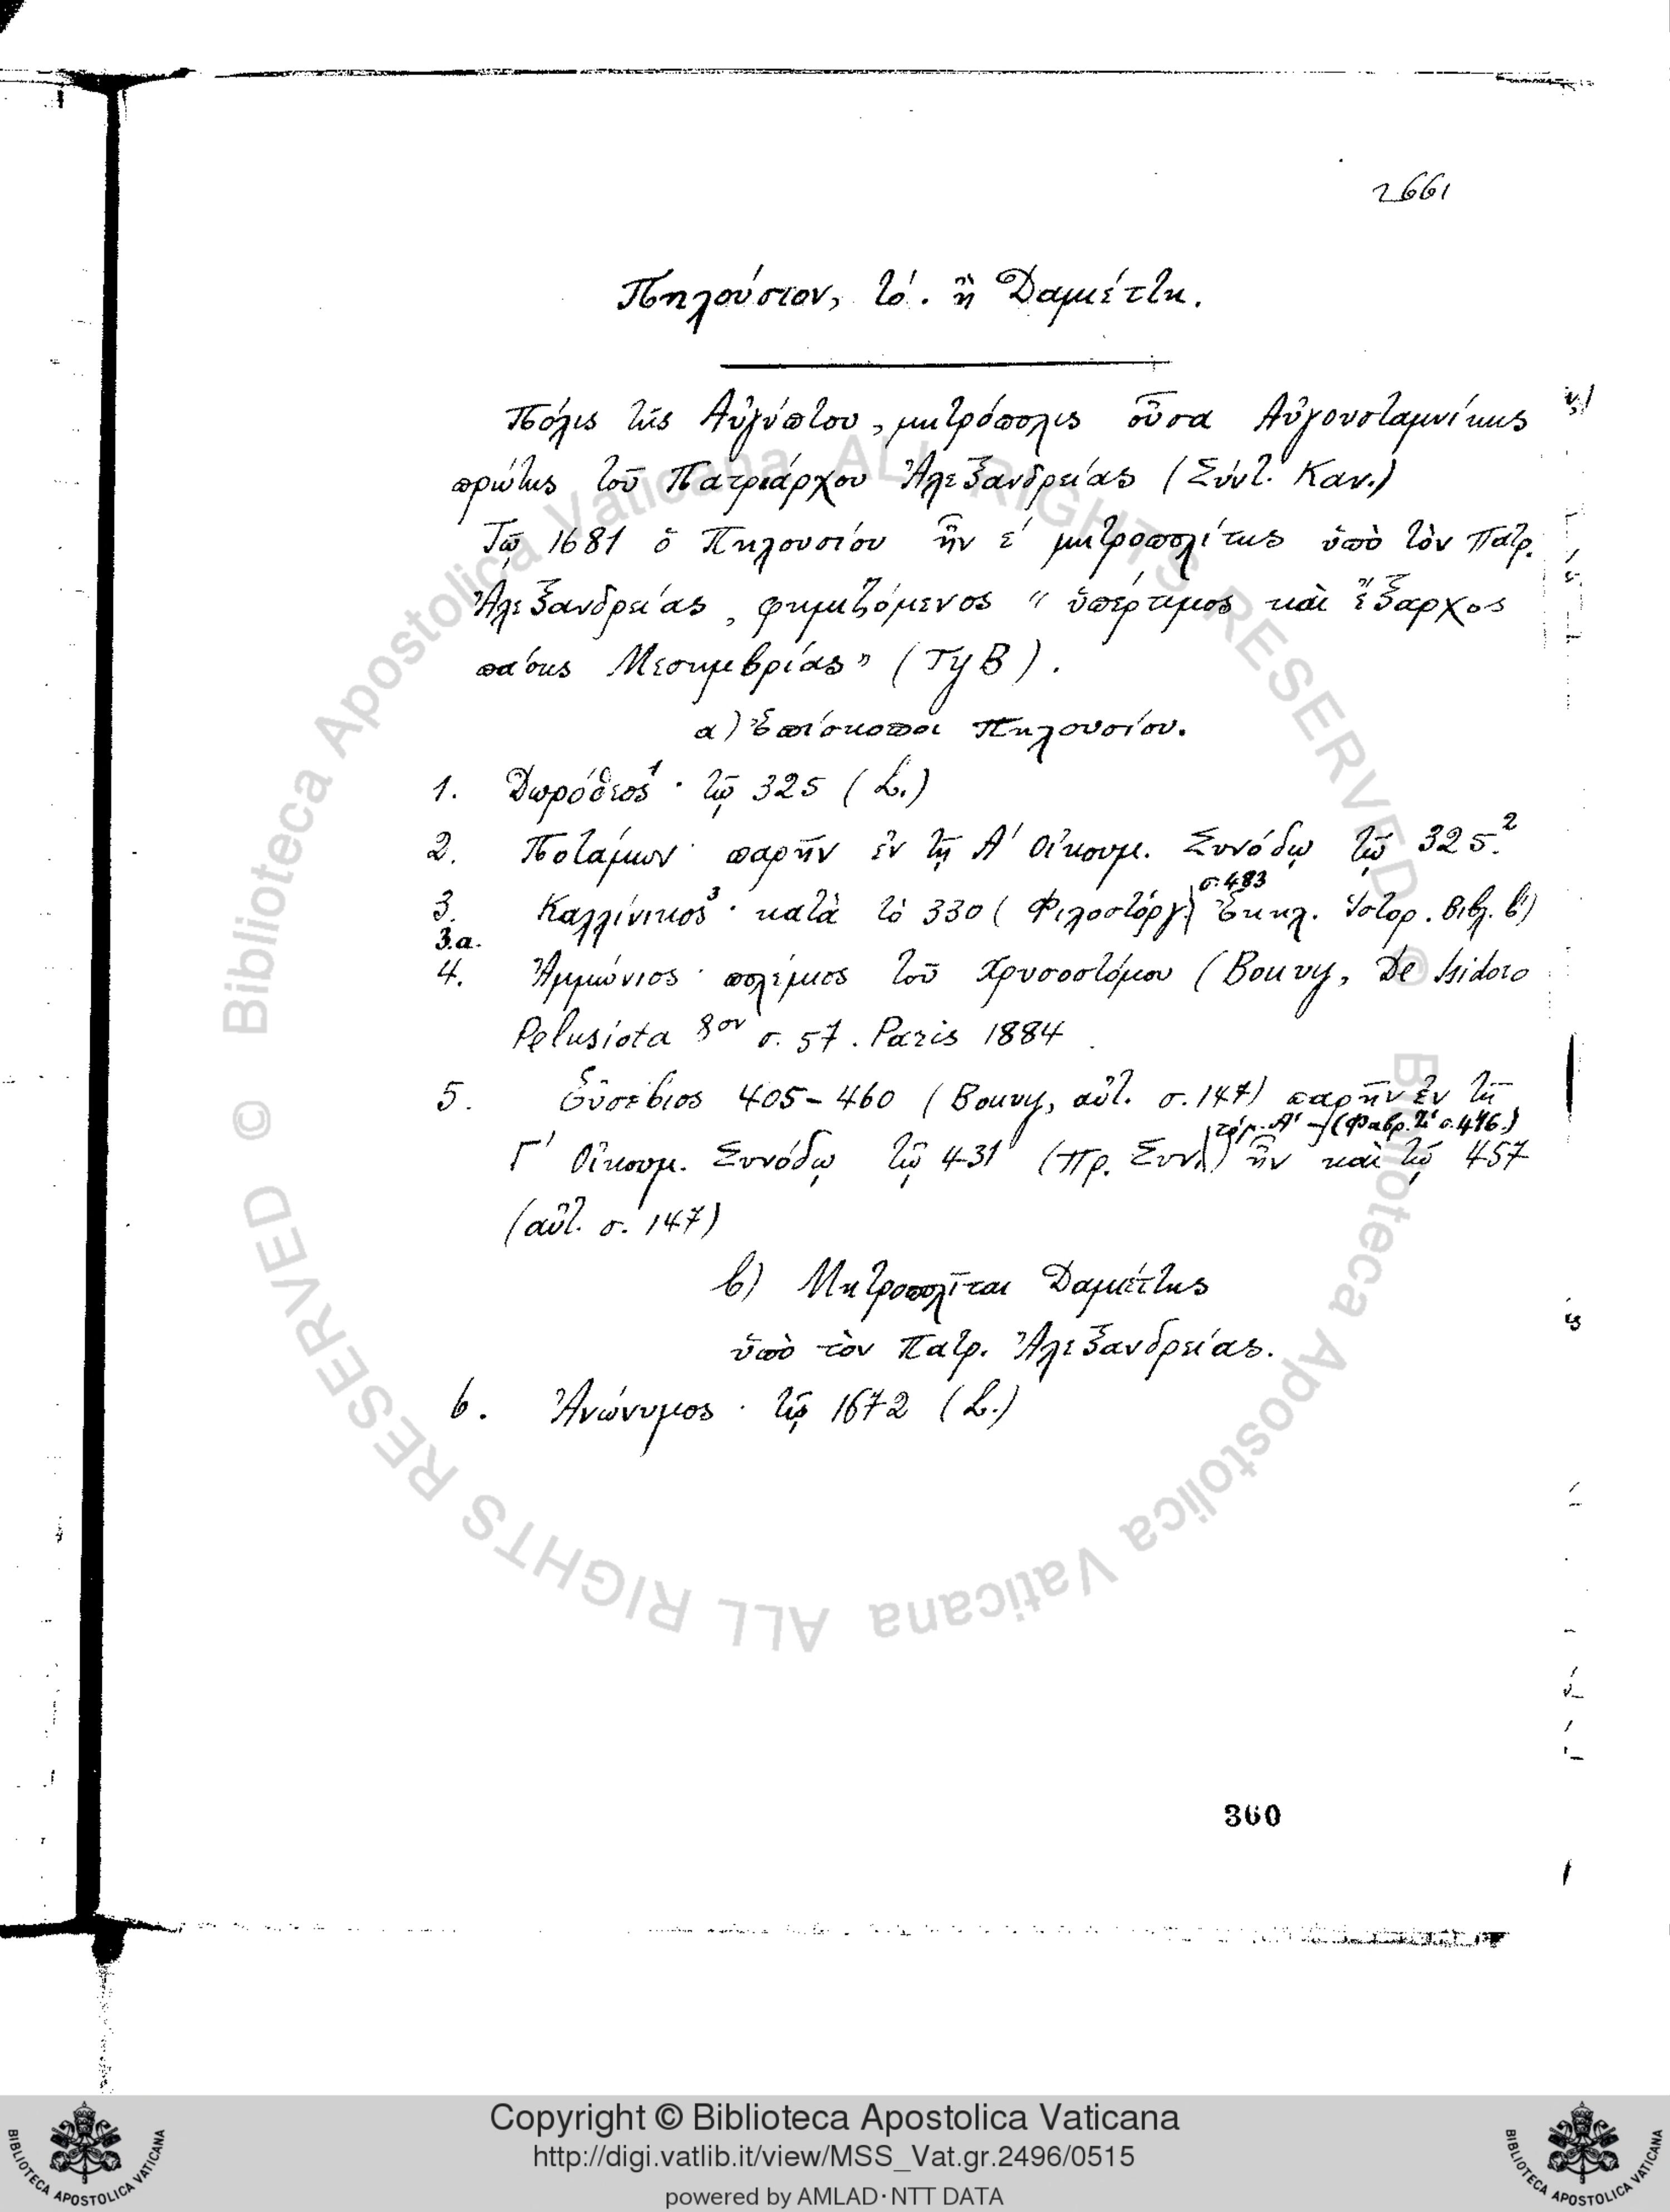 2661
Πηλούσιον, τό. ἢ Δαμιέττη.
Πόλις τῆς Αἰγύπτου, μητρόπολις οὖσα Αὐγουσταμνίκης
πρώτης τοῦ Πατριάρχου Ἀλεξανδρείας (Σύντ. Καν.)
Τῷ 1681 ὁ Πηλουσίου ἦν ε′ μητροπολίτης ὑπὸ τὸν Πατρ.
Ἀλεξανδρείας, φημιζόμενος " ὑπέρτιμος καὶ ἔξαρχος
πάσης Μεσημβρίας" (ΤγΒ).
α) Ἐπίσκοποι Πηλουσίου.
1. Δωρόθεος¹ · τῷ 325 (L.)
2. Ποτάμων · παρῆν ἐν τῇ Α′ Οἰκουμ. Συνόδῳ τῷ 325.²
σ. 483
3. Καλλίνικος³ · κατὰ τὸ 330 (Φιλοστόργ. Ἐκκλ. Ἱστορ. Βιβλ. β′)
3.α.
4. Ἀμμώνιος · πολέμιος τοῦ Χρυσοστόμου (Bouvy, De Isidoro
Pelusiota 8ον σ. 57. Paris 1884
5. Εὐσέβιος 405-460 (Bouvy, αὐτ. σ. 147) παρῆν ἐν τῇ
τόμ. Α′ (Φαβρ. Ζ′ σ. 496.)
Γ′ Οἰκουμ. Συνόδῳ τῷ 431 (Πρ. Συν.) ἦν καὶ τῷ 457
(αὐτ. σ. 147)
β) Μητροπολῖται Δαμιέττης
ὑπὸ τὸν Πατρ. Ἀλεξανδρείας.
6. Ἀνώνυμος · τῷ 1672 (L.)
360
© Biblioteca Apostolica Vaticana ALL RIGHTS RESERVED © Biblioteca Apostolica Vaticana ALL RIGHTS RESERVED
Copyright © Biblioteca Apostolica Vaticana
http://digi.vatlib.it/view/MSS_Vat.gr.2496/0515
powered by AMLAD·NTT DATA
BIBLIOTECA APOSTOLICA VATICANA
BIBLIOTECA APOSTOLICA VATICANA